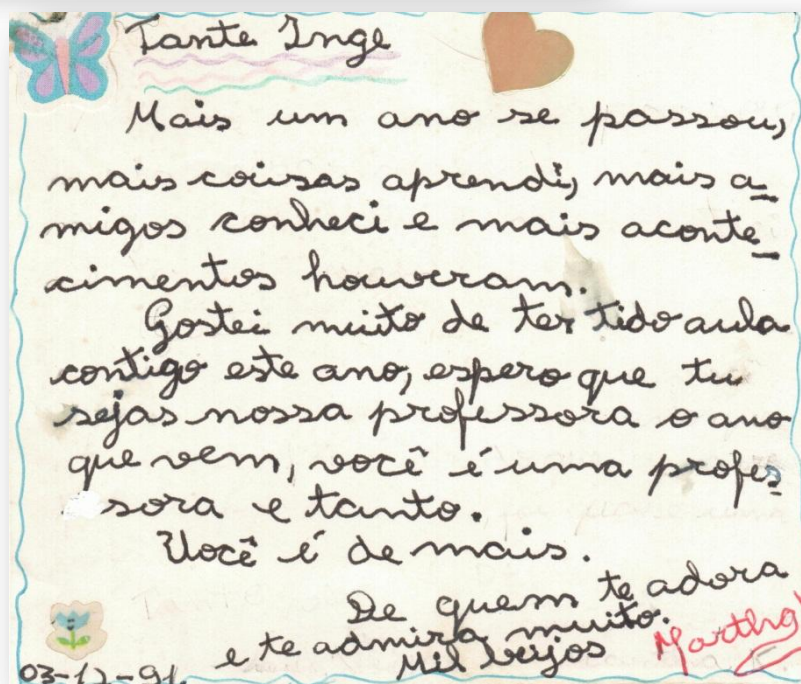 Tante Inge
Mais um ano se passou,
mais coisas aprendi, mais a-
migos conheci e mais aconte-
cimentos houveram.
Gostei muito de ter tido aula
contigo este ano, espero que tu
sejas nossa professora o ano
que vem, você é uma profes-
sora e tanto.
Você é de mais.
De quem te adora
e te admira muito.
Mil beijos Martha
03-12-91